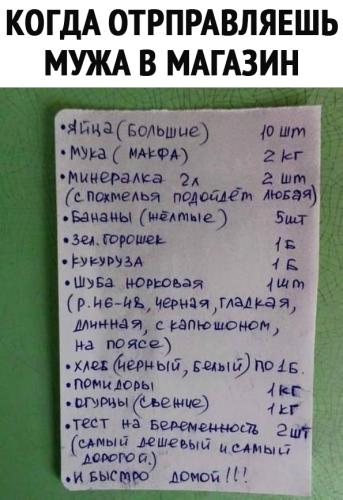 КОГДА ОТРПРАВЛЯЕШЬ
МУЖА В МАГАЗИН
• Яйца (большие) 10 шт
• Мука (МАКФА) 2 кг
• Минералка 2л 2 шт
(с похмелья подойдёт любая)
• Бананы (жёлтые) 5шт
• Зел. горошек 1 Б
• Кукуруза 1 Б
• Шуба норковая 1 шт
(р. 46-48, чёрная, гладкая,
длинная, с капюшоном,
на поясе)
• хлеб (чёрный, белый) по 1 Б.
• помидоры 1 кг
• огурцы (свежие) 1 кг
• тест на беременность 2 шт
(самый дешевый и самый
дорогой.)
• и быстро домой!!!